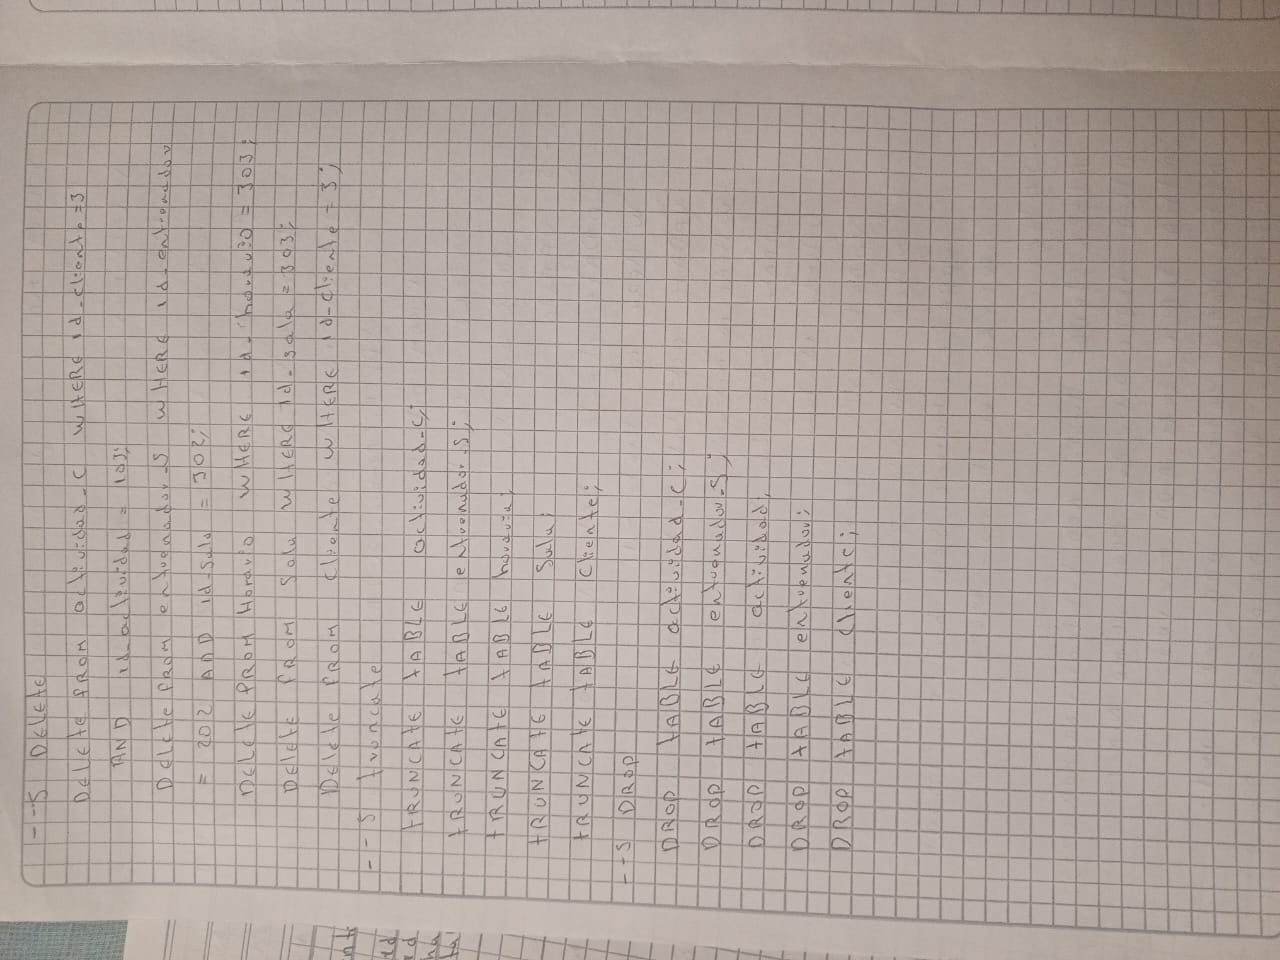 --5 DELETE
DELETE FROM actividad_C WHERE id_cliente = 3
AND id_actividad = 103;
DELETE FROM entrenador_S WHERE id_entrenador
= 202 AND id_sala = 302;
DELETE FROM Horario WHERE id_horario = 303;
DELETE FROM Sala WHERE id_sala = 303;
DELETE FROM cliente WHERE id_cliente = 3;
--5 truncate
tRUNCAtE tABLE actividad_C;
tRUNCAtE tABLE entrenador_S;
tRUNCAtE tABLE horario;
tRUNCAtE tABLE Sala;
tRUNCAtE tABLE Cliente;
--5 DROP
DROP tABLE actividad_C;
DROP tABLE entrenador_S;
DROP tABLE actividad;
DROP tABLE entrenador;
DROP tABLE cliente;